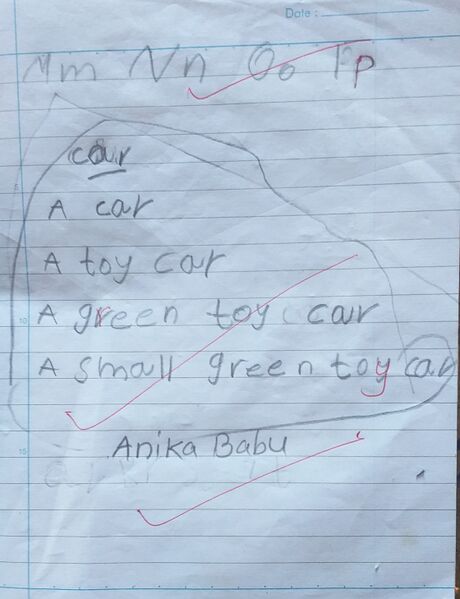 Date :
Mm Nn Oo Pp
car
A car
A toy car
A green toy car
A small green toy car
Anika Babu